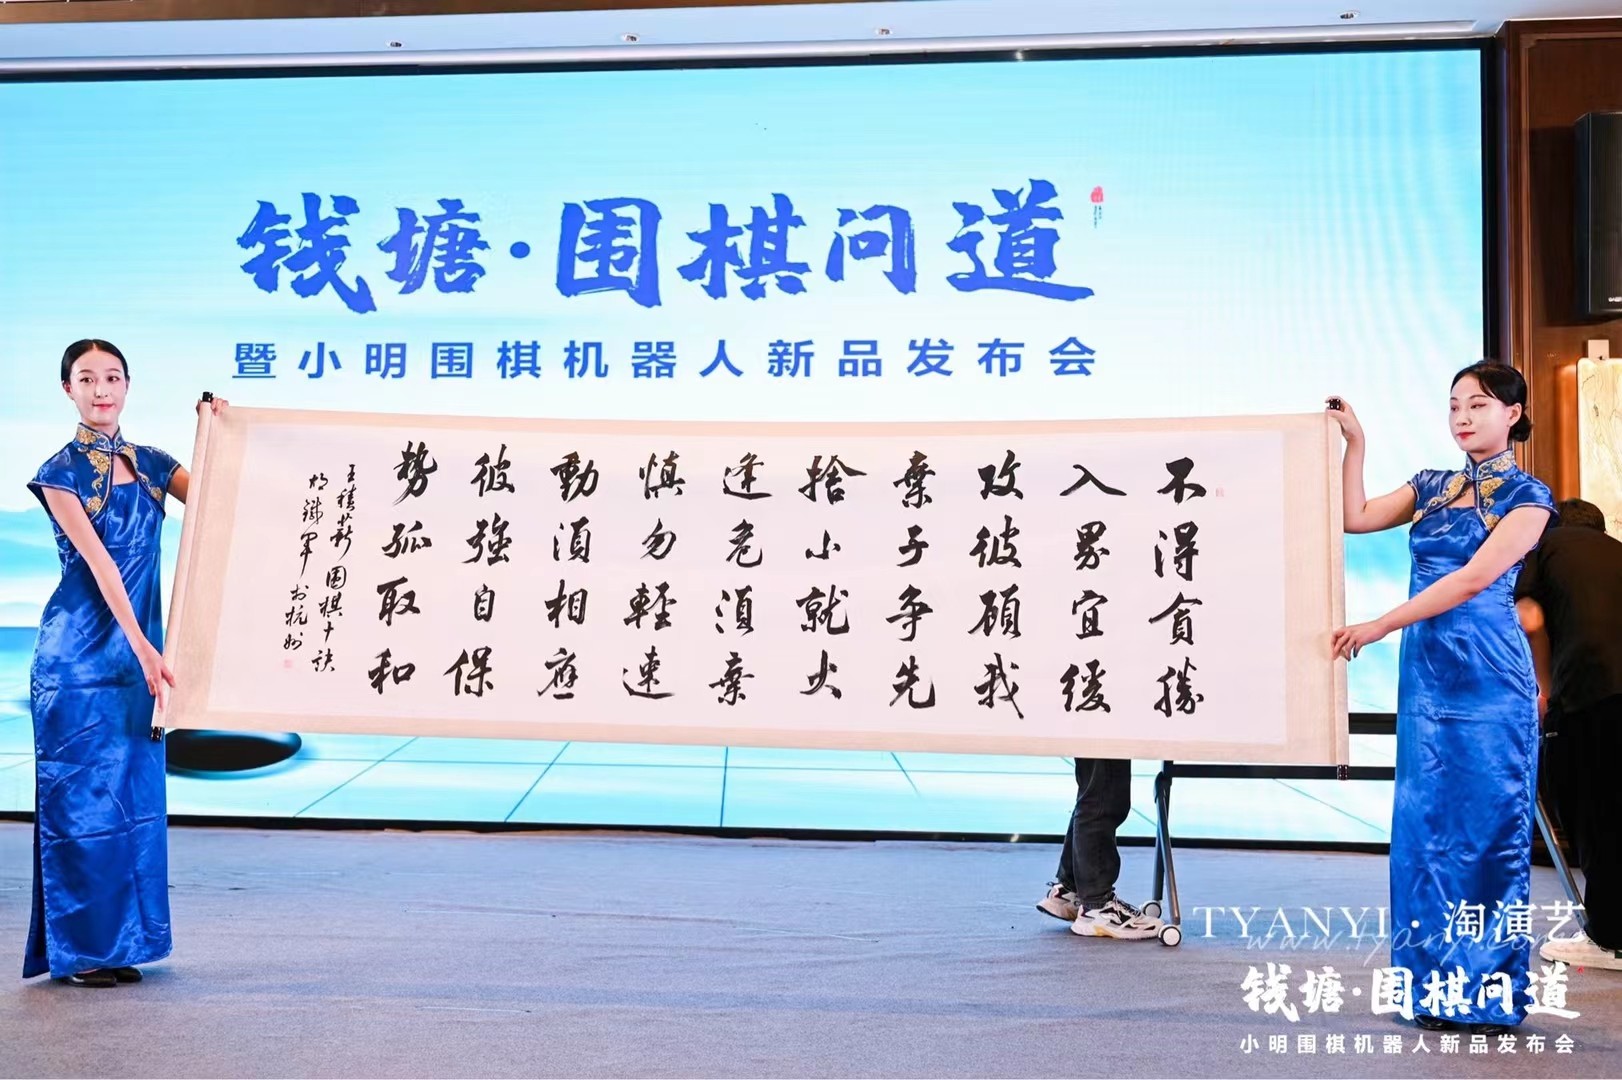 钱塘·围棋问道
暨小明围棋机器人新品发布会
不得貪勝
入界宜缓
攻彼顾我
棄子争先
捨小就大
逢危須棄
慎勿輕速
動須相應
彼強自保
势孤取和
王積薪围棋十訣
書於杭州
TYANYI·淘演艺
www.tyanyi.com
钱塘·围棋问道
小明围棋机器人新品发布会